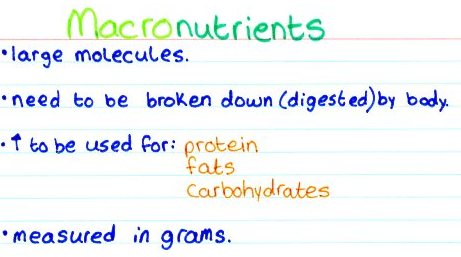 Macronutrients
•large molecules.
•need to be broken down (digested) by body.
•↑ to be used for: protein
fats
carbohydrates
•measured in grams.